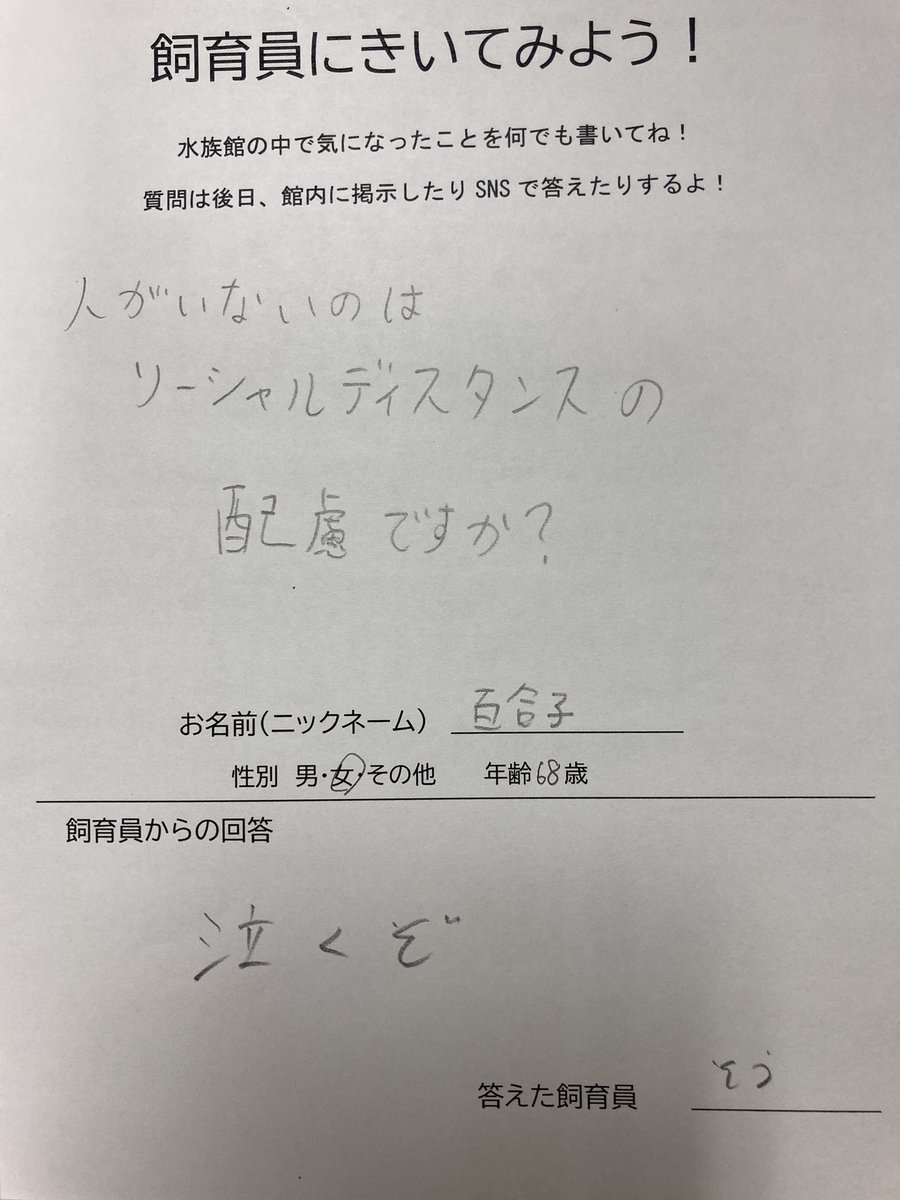 飼育員にきいてみよう！
水族館の中で気になったことを何でも書いてね！
質問は後日、館内に掲示したりSNSで答えたりするよ！
人がいないのは
ソーシャルディスタンスの
配慮ですか？
お名前（ニックネーム） 百合子
性別 男・女・その他 年齢68歳
飼育員からの回答
泣くぞ
答えた飼育員 そう